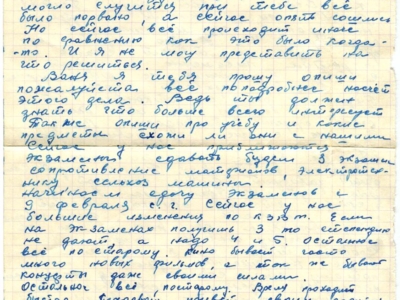 могло случится при тебе всё
было порвано, а сейчас опять сошлись
Но сейчас всё происходит иначе
по сравнению как это было когда-
-то. И я не могу представить на
что решиться.
Ваня я тебя прошу опиши
пожалуйста всё по подробнее насчёт
этого дела. Ведь ты должен
знать что больше всего интересует
Так же опиши про учёбу и какие
предметы схожи ли они с нашими
Сейчас у нас приближаются
экзамены сдавать будем 3 экзамен
сопротивление материалов, электротех-
нику сельхоз машины,
начинаем сдачу экзаменов с
9 февраля с.г. Сейчас у нас
большие изменения по Если
на экзаменах получишь 3 то стипендию
не дают а надо 4 и 5. Остальное
всё по старому. Кино бывает часто
много новых фильмов а так же бывают
концерты даже своими силами.
Остальное всё постарому. Время проходит
быстро